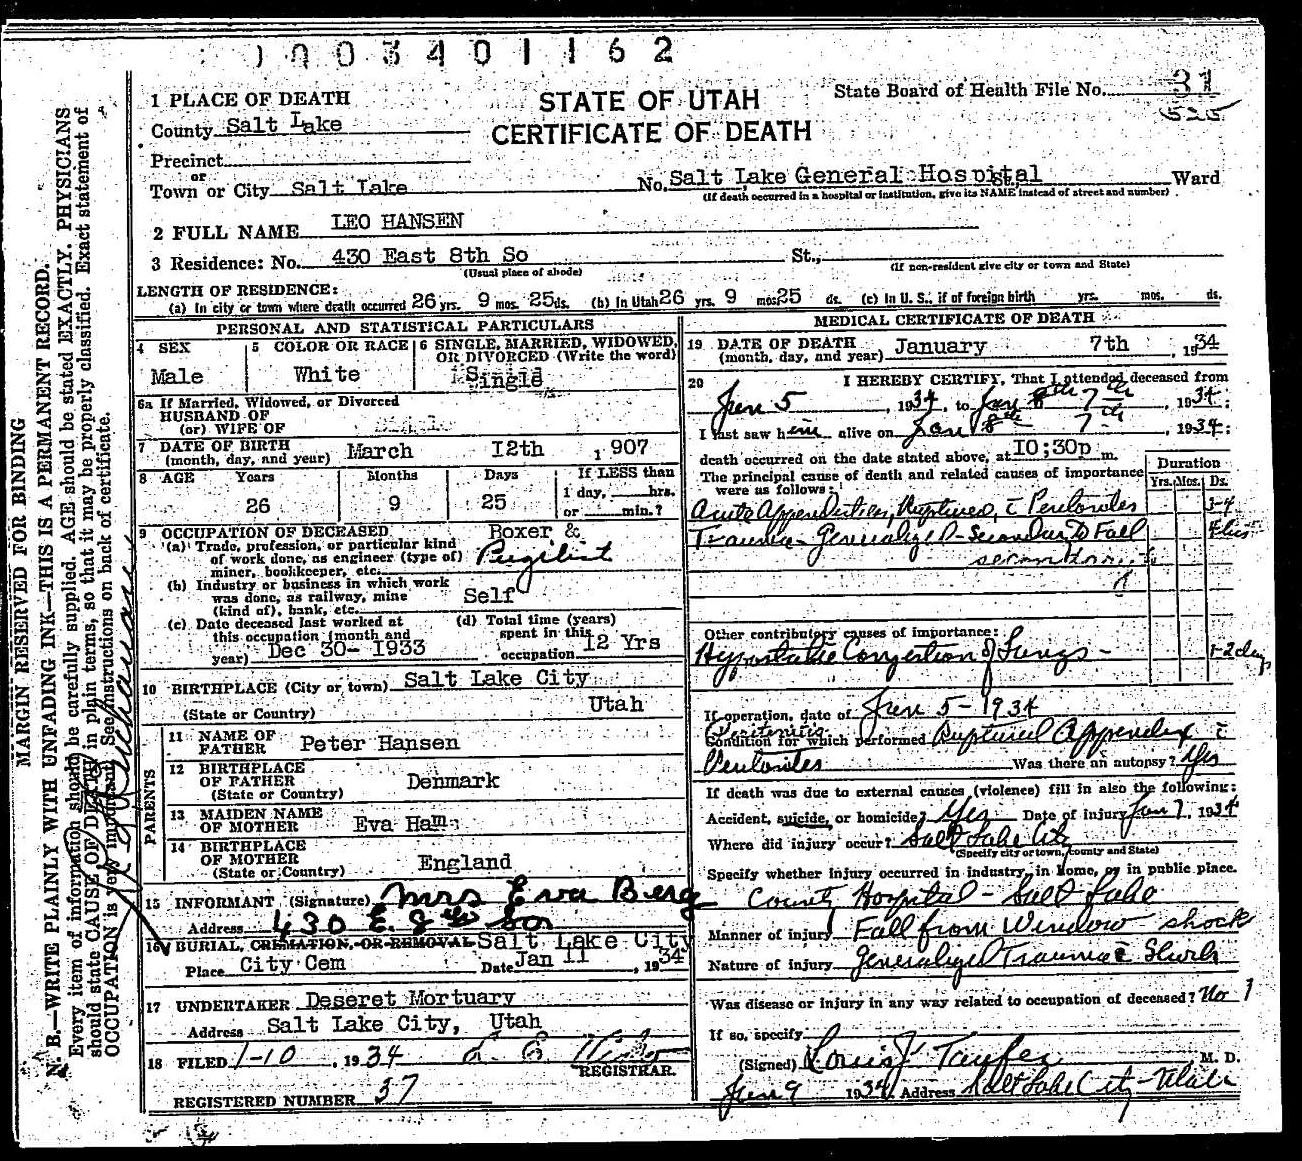 1003401162
State Board of Health File No. 31
525
STATE OF UTAH
CERTIFICATE OF DEATH
1 PLACE OF DEATH
County Salt Lake
Precinct
or
Town or City Salt Lake No. Salt Lake General Hospital St., Ward
(If death occurred in a hospital or institution, give its NAME instead of street and number)
2 FULL NAME LEO HANSEN
3 Residence: No. 430 East 8th So St.,
(Usual place of abode) (If non-resident give city or town and State)
LENGTH OF RESIDENCE:
(a) In city or town where death occurred 26 yrs. 9 mos. 25 ds. (b) In Utah 26 yrs. 9 mos. 25 ds. (c) In U. S., if of foreign birth yrs. mos. ds.
PERSONAL AND STATISTICAL PARTICULARS
4 SEX
Male
5 COLOR OR RACE
White
6 SINGLE, MARRIED, WIDOWED,
OR DIVORCED (Write the word)
Single
6a If Married, Widowed, or Divorced
HUSBAND OF
(or) WIFE OF
7 DATE OF BIRTH
(month, day, and year) March 12th 1907
8 AGE Years Months Days If LESS than
1 day, hrs.
26 9 25 or min.?
9 OCCUPATION OF DECEASED
(a) Trade, profession, or particular kind
of work done, as engineer (type of)
miner, bookkeeper, etc.
Boxer &
Pugilist
(b) Industry or business in which work
was done, as railway, mine
(kind of), bank, etc.
Self
(c) Date deceased last worked at
this occupation (month and
year) Dec 30- 1933
(d) Total time (years)
spent in this
occupation 12 Yrs
10 BIRTHPLACE (City or town) Salt Lake City
(State or Country) Utah
PARENTS
11 NAME OF
FATHER Peter Hansen
12 BIRTHPLACE
OF FATHER Denmark
(State or Country)
13 MAIDEN NAME
OF MOTHER Eva Ham
14 BIRTHPLACE
OF MOTHER England
(State or Country)
15 INFORMANT (Signature) Mrs Eva Berg
Address 430 E. 8th So
16 BURIAL, CREMATION, OR REMOVAL Salt Lake City
Place City Cem Date Jan 11, 1934
17 UNDERTAKER Deseret Mortuary
Address Salt Lake City, Utah
18 FILED 1-10, 1934
REGISTRAR.
REGISTERED NUMBER 37
MEDICAL CERTIFICATE OF DEATH
19 DATE OF DEATH
(month, day, and year) January 7th, 1934
20 I HEREBY CERTIFY, That I attended deceased from
Jan 5, 1934, to Jan 8th 7th, 1934;
I last saw him alive on Jan 8th 7th, 1934;
death occurred on the date stated above, at 10;30p m.
The principal cause of death and related causes of importance
were as follows:
Duration
Yrs. Mos. Ds.
Acute Appendicitis, Ruptured, c Peritonitis 3-4
Trauma - Generalized - Secondary to Fall
Other contributory causes of importance:
Hypostatic Congestion of Lungs - 1-2 days
If operation, date of Jan 5 - 1934
Peritonitis
Condition for which performed Ruptured Appendix c
Peritonitis Was there an autopsy? Yes
If death was due to external causes (violence) fill in also the following:
Accident, suicide, or homicide? Yes Date of injury Jan 7, 1934
Where did injury occur? Salt Lake City
(Specify city or town, county and State)
Specify whether injury occurred in industry, in home, or in public place.
County Hospital - Salt Lake
Manner of injury Fall from Window - shock
Nature of injury Generalized Trauma c Shock
Was disease or injury in any way related to occupation of deceased? No
If so, specify
(Signed) Louis J Taufer, M. D.
Jan 9 1934 Address Salt Lake City - Utah
MARGIN RESERVED FOR BINDING
N. B.—WRITE PLAINLY WITH UNFADING INK—THIS IS A PERMANENT RECORD.
Every item of information should be carefully supplied. AGE should be stated EXACTLY. PHYSICIANS
should state CAUSE OF DEATH in plain terms, so that it may be properly classified. Exact statement of
OCCUPATION is very important. See instructions on back of certificate.